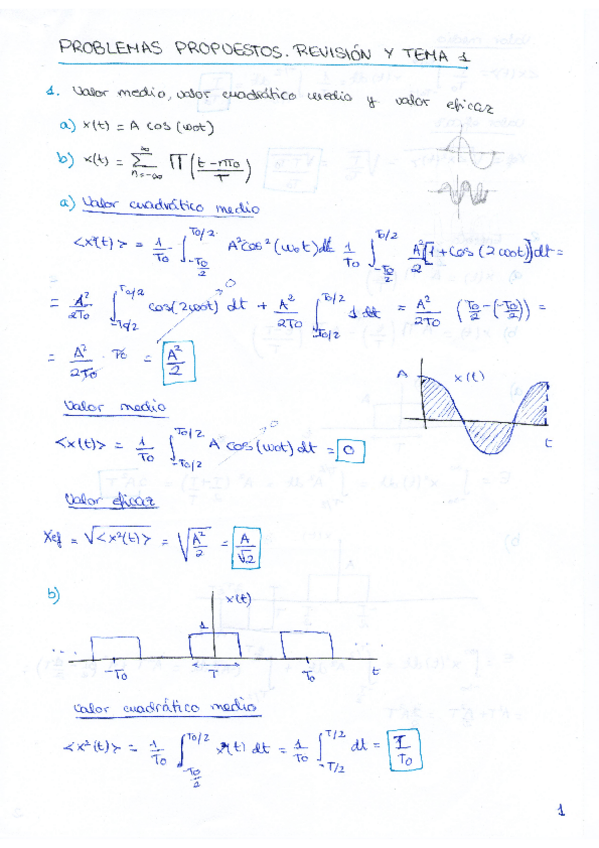 PROBLEMAS PROPUESTOS. REVISIÓN Y TEMA 1
1. Valor medio, valor cuadrático medio y valor eficaz
a) x(t) = A cos(ωot)
b) x(t) = ∑_{n=-∞}^{∞} Π((t-nTo)/T)
a) Valor cuadrático medio
<x²(t)> = 1/To ∫_{-To/2}^{To/2} A²cos²(ωot)dt 1/To ∫_{-To/2}^{To/2} A²/2 [1 + cos(2ωot)]dt =
= A²/2To ∫_{-To/2}^{To/2} cos(2ωot) dt + A²/2To ∫_{-To/2}^{To/2} 1 dt = A²/2To (To/2 - (-To/2)) =
0
= A²/2To · To = A²/2
A x(t)
t
Valor medio
<x(t)> = 1/To ∫_{-To/2}^{To/2} A cos(ωot) dt = 0
0
Valor eficaz
Xef = √<x²(t)> = √(A²/2) = A/√2
b)
x(t)
1
... -To T To t ...
Valor cuadrático medio
<x²(t)> = 1/To ∫_{-To/2}^{To/2} x(t) dt = 1/To ∫_{-T/2}^{T/2} dt = T/To
1